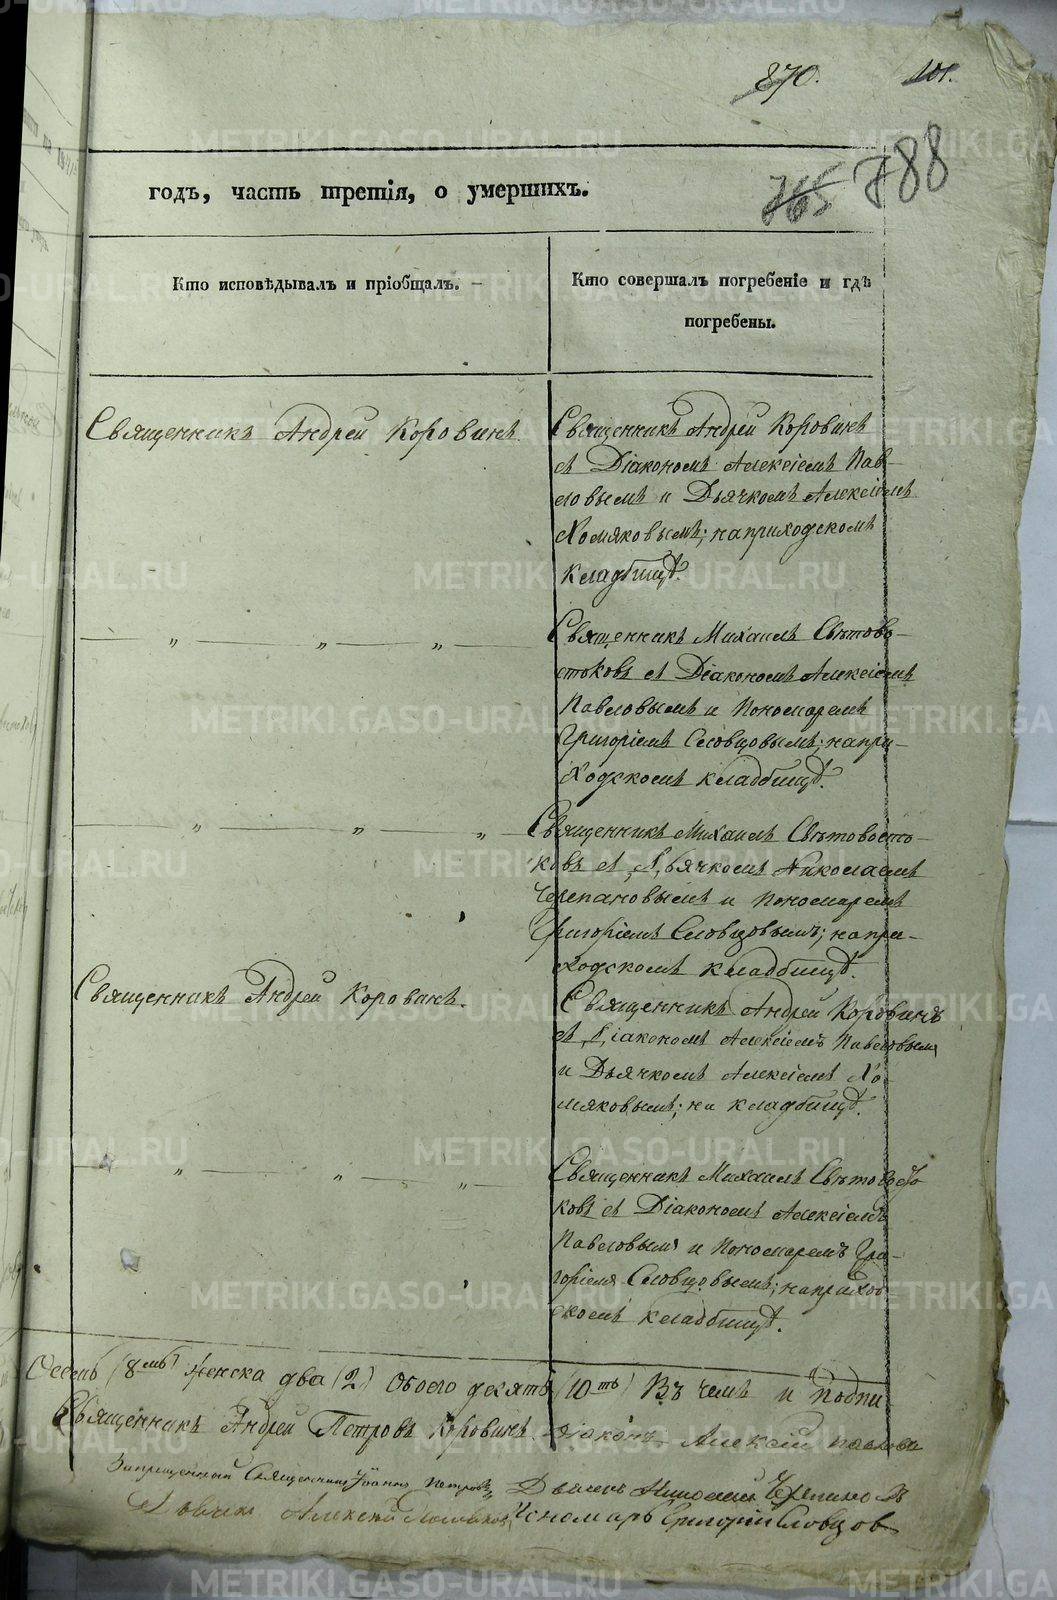 870. 101.
765 788
годъ, часть третія, о умершихъ.
Кто исповѣдывалъ и пріобщалъ.
Кто совершалъ погребеніе и гдѣ
погребены.
Священникъ Андрей Коровинъ
Священникъ Андрей Коровинъ
съ Діакономъ Алексіемъ Пав-
ловымъ и Дьячкомъ Алексіемъ
Хомяковымъ; на приходскомъ
кладбищѣ.
— „ — „ — „ —
Священникъ Михаилъ Свѣтово-
стоковъ съ Діакономъ Алексіемъ
Павловымъ и Пономаремъ
Григоріемъ Словцовымъ; на при-
ходскомъ кладбищѣ.
— „ — „ — „ —
Священникъ Михаилъ Свѣтовосто-
ковъ съ Дьячкомъ Николаемъ
Черепановымъ и Пономаремъ
Григоріемъ Словцовымъ; на при-
ходскомъ кладбищѣ.
Священникъ Андрей Коровинъ.
Священникъ Андрей Коровинъ
съ Діакономъ Алексіемъ Павловымъ
и Дьячкомъ Алексіемъ Хо-
мяковымъ; на кладбищѣ.
— „ — „ — „ —
Священникъ Михаилъ Свѣтовосто
ковъ съ Діакономъ Алексіемъ
Павловымъ и Пономаремъ Гри-
горіемъ Словцовымъ; на приход
скомъ кладбищѣ.
Осемь (8мь) женска два (2) Обоего десять (10ть) Въ чемъ и подпи
Священникъ Андрей Петровъ Коровинъ. Діаконъ Алексій Павловъ
Запрещенный Священникъ Іоаннъ Петровъ Дьячекъ Николай Черепановъ
Дьячекъ Алексѣй Хомяковъ Пономарь Григорій Словцовъ
METRIKI.GASO-URAL.RU